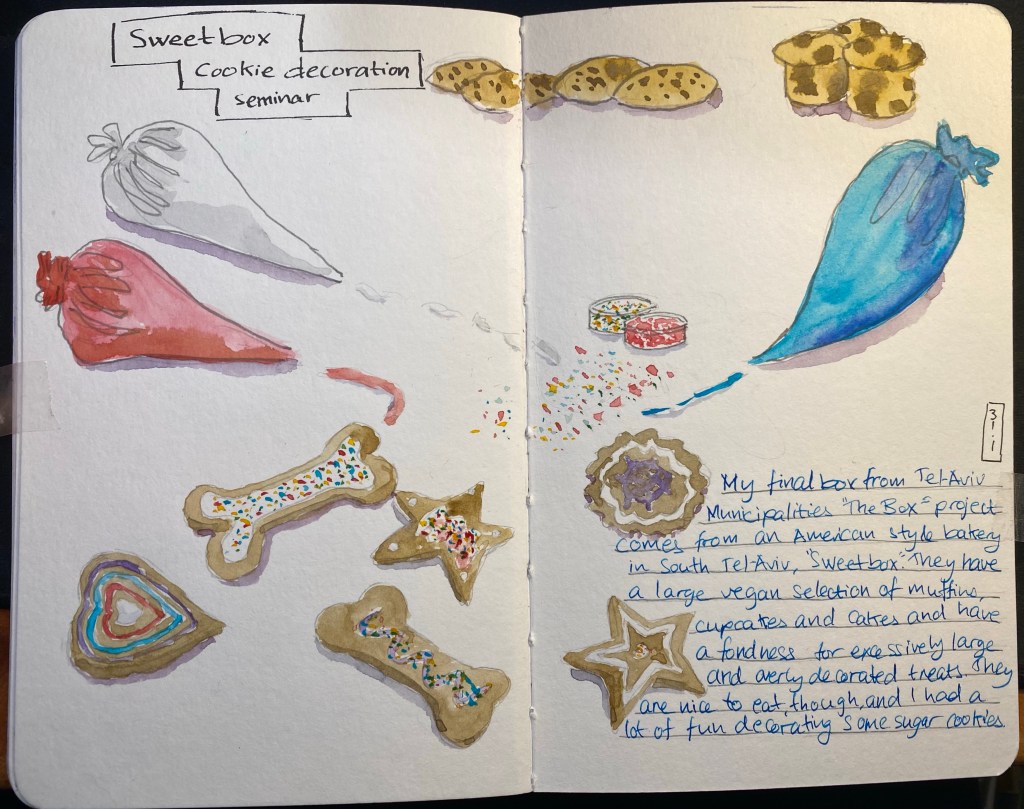 Sweetbox
Cookie decoration
seminar
31.1
My final box from Tel-Aviv
Municipalities "The Box" project
comes from an American style bakery
in South Tel-Aviv, "Sweetbox". They have
a large vegan selection of muffins,
cupcakes and cakes and have
a fondness for excessively large
and overly decorated treats. They
are nice to eat, though, and I had a
lot of fun decorating some sugar cookies.